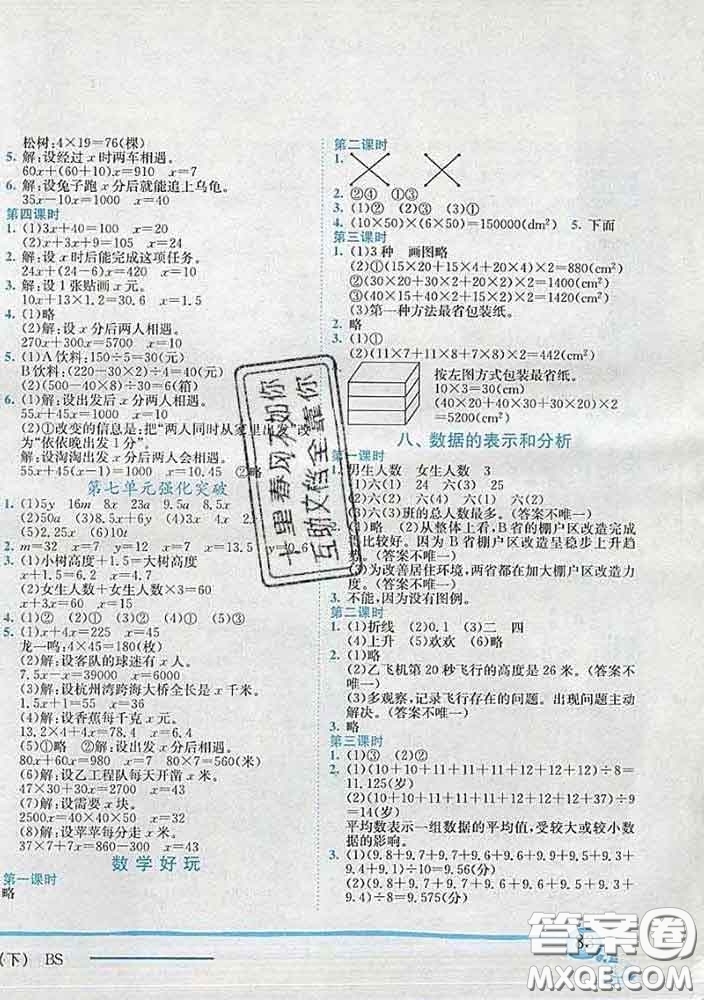 松树:4×19=76(棵)
5. 解:设经过x时两车相遇。
60x+(60+10)x=1300 x=10
6. 解:设兔子跑x分后就能追上乌龟。
35x-10x=1000 x=40
第四课时
1. (1)3x+40=100 x=20
(2)x+3x+9=105 x=24
2. 解:设x时后能完成这项任务。
24x+(24-6)x=1680 x=40
3. 解:设1张贴画x元。
10x+13×1.2=30.6 x=1.5
4. (1)略
(2)解:设x分后两人相遇。
270x+300x=5700 x=10
5. (1)A饮料:150÷5=30(元)
B饮料:(220-30×2)÷4=40(元)
(2)(500-40×8)÷30=6(箱)
6. (1)解:设出发后x分两人相遇。
55x+45x=1000 x=10
(2)①改变的信息是:把“两人同时从家里出发”改
为“依依晚出发1分”。
解:设淘淘出发x分后两人会相遇。
55x+45(x-1)=1000 x=10.45 ②略
第七单元强化突破
1. (1)5y 16m 8x 23a 9.5 8.5x
(2)50a (3)2a+8.5 (4)2x
(5)2.25x (6)10x
2. m=32 x=7 y=12 x=7 x=13.5 y=5.6
3. (1)小树高度+1.5=大树高度
x+1.5=6
(2)女生人数+女生人数×3=60
x+3x=60
4. (1)② (2)① (3)① (4)① (5)③
5. (1)x+4x=225 x=45
龙一鸣:4×45=180(枚)
(2)解:设客队的球迷有x人。
7.5x-x=39000 x=6000
(3)解:设杭州湾跨海大桥全长是x千米。
1.5x+1=55 x=36
(4)解:设香蕉每千克x元。
13.2×4+4x=78.8 x=6.5
(5)①略 ②解:设出发x分后两人相遇。
80x+60x=980 x=7 80×7=560(米)
(6)解:设乙工程队每天开凿x米。
47×30+30x=2700 x=43
(7)解:设需要x块。
2500x=40×40×100 x=64
(8)解:设苹苹每分走x米。
7x+62×7=860-300 x=18
数学好玩
第一课时
略
(下) BS
第二课时
1.
2. ②④ ①③
3. (1)② (2)② (3)①
4. (10×50)×(6×50)=150000(dm²) 5. 下面
第三课时
1. (1)3种 画图略
(2)①(15×20+15×4+20×4)×2=880(cm²)
②(30×20+30×2+20×2)×2=1400(cm²)
③(40×15+40×2+15×2)×2=1420(cm²)
(3)第一种方法最省包装纸。
2. 略
3. (1)①
(2)(11×7+11×8+7×8)×2=442(cm²)
按左图方式包装最省纸。
10×3=30(cm)
(40×20+40×30+20×30)×2
=5200(cm²)
八、数据的表示和分析
第一课时
1. 男生人数 女生人数 3
(1)六(1) 24 六(3) 25
(2)六(1) 六(4) 六(2) 六(2)
(3)六(3)班的总人数最多。(答案不唯一)
2. (1)略 (2)从整体上看,B省的棚户区改造完成
情况比较好。因为B省棚户区改造呈稳步上升趋
势。(答案不唯一)
(3)为改善居住环境,两省都在加大棚户区改造力
度。(答案不唯一)
3. 不能,因为没有图例。
第二课时
1. (1)折线 (2)0.1 (3)二 四
(4)上升 (5)欢欢 (6)略
2. (1)略
(2)乙飞机第20秒飞行的高度是26米。(答案不
唯一)
(3)多观察,记录飞行存在的问题。出现问题主动
解决。(答案不唯一)
3. 略
第三课时
1. (1)③ (2)②
2. (1)(10+10+11+11+11+12+12+12)÷8=
11.125(岁)
(2)(10+10+11+11+11+12+12+12+37)÷9
=14(岁)
平均数表示一组数据的平均值,受较大或较小数
据的影响。
3. (1)(9.8+9.7+9.7+9.6+9.6+9.9+9.5+9.4+
9.3+9.1)÷10=9.56(分)
(2)(9.8+9.7+9.7+9.6+9.6+9.5+9.4+
9.3)÷8=9.575(分)
十里春风不如你
互助文档全靠你
答案圈
MXQE.COM